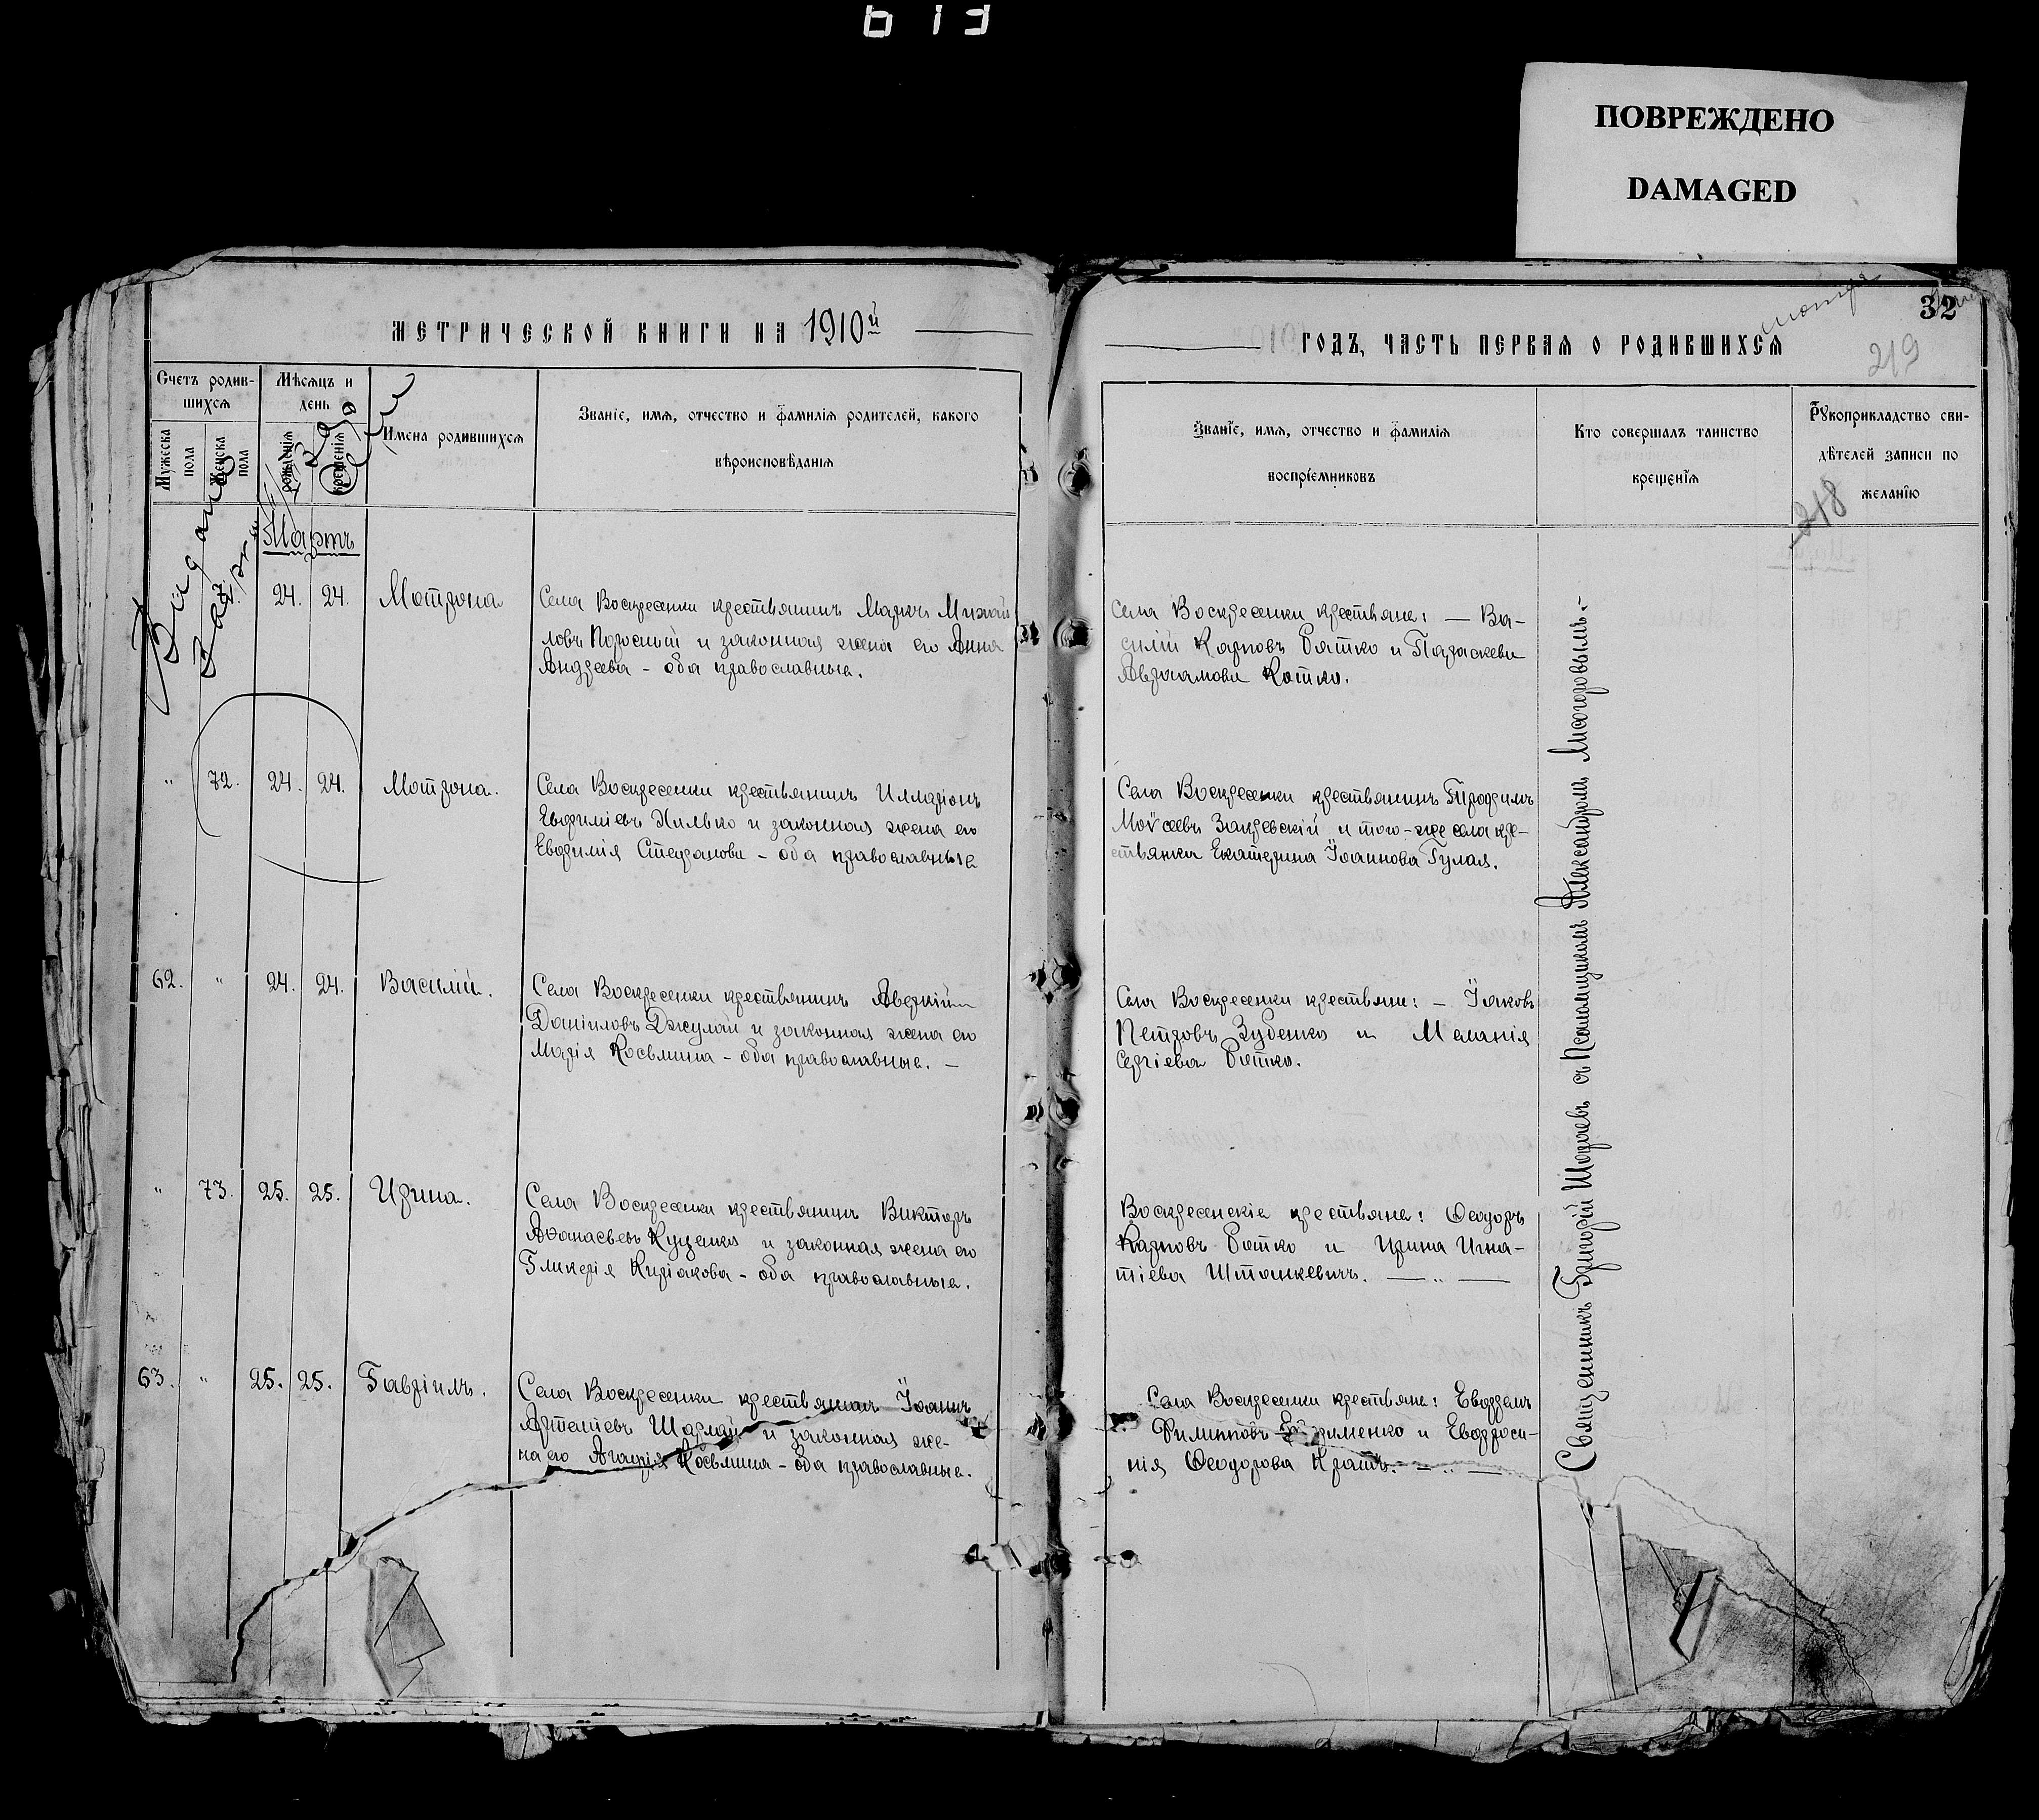 613
ПОВРЕЖДЕНО
DAMAGED
МЕТРИЧЕСКОЙ КНИГИ НА 1910й
Счетъ родив-
шихся
Мужеска пола
Женска пола
Мѣсяцъ и
день
рожденія
крещенія
Имена родившихся
Званіе, имя, отчество и фамилія родителей, какого
вѣроисповѣданія
Мартъ
24. 24. Матрона
Села Воскресенки крестьянинъ Маркъ Михаи
ловъ и законная жена его Анна
Андреева - оба православные.
" 72. 24. 24. Матрона.
Села Воскресенки крестьянинъ Илларіонъ
Евфиміевъ Хилько и законная жена его
Евфимія Стефанова - оба православные
62. " 24. 24. Василій.
Села Воскресенки крестьянинъ Аверкій
Даніиловъ Джулай и законная жена его
Марія Косьмина - оба православные. -
" 73. 25. 25. Ирина.
Села Воскресенки крестьянинъ Викторъ
Аѳанасьевъ Куценко и законная жена его
Гликерія Киріакова - оба православные.
63. " 25. 25. Гавріилъ.
Села Воскресенки крестьянинъ Іоаннъ
Шарлай и законная же-
на его Косьмина - оба православные.
32
219
ГОДЪ, ЧАСТЬ ПЕРВАЯ О РОДИВШИХСЯ
Званіе, имя, отчество и фамилія
воспріемниковъ
Кто совершалъ таинство
крещенія
Рукоприкладство сви-
дѣтелей записи по
желанію
218
Села Воскресенки крестьяне: — Ва-
силій Карповъ Вятко и Параскева
Авраамова Котко.
Села Воскресенки крестьянинъ Трофимъ
Моѵсеевъ Закревскій и того-же села кре-
стьянка Екатерина Іоаннова Гулая.
Села Воскресенки крестьяне: - Іаковъ
Петровъ Зубенко и Меланія
Сергіева Вятко.
Воскресенскіе крестьяне: Ѳеодоръ
Карповъ Вятко и Ирина Игна-
тіева Штанкевичъ. — „ —
Села Воскресенки крестьяне: Евфремъ
Филипповъ и Евфроси-
нія Ѳеодорова Кратъ. — „ —
Священникъ Григорій съ Псаломщикомъ Александромъ Лисогоровымъ.-